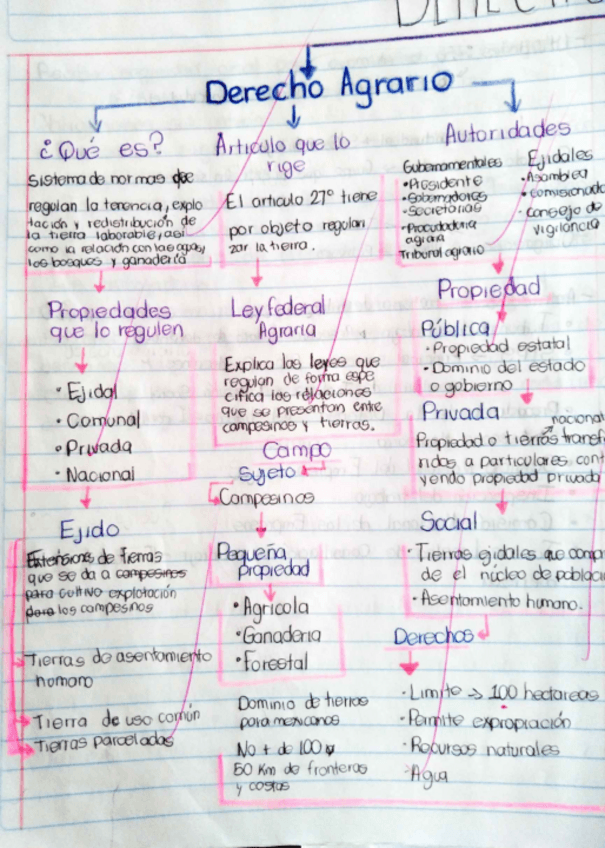 Derecho Agrario
¿Qué es?
Sistema de normas que
regulan la tenencia, explo
tación y redistribución de
la tierra laborable, así
como la relación con las aguas,
los bosques y ganadería
Propiedades
que lo regulen
• Ejidal
• Comunal
• Privada
• Nacional
Ejido
Extensiones de tierras
que se da a campesinos
para cultivo explotación
para los campesinos
Tierras de asentamiento
homano
Tierra de uso común
Tierras parceladas
Articulo que lo
rige
El articulo 27° tiene
por objeto regulari
zar la tierra.
Ley federal
Agraria
Explica las leyes que
regulan de forma espe
cifica las relaciones
que se presentan entre
campesinos y tierras.
Campo
Sujeto
Campesinos
Pequeña
propiedad
• Agrícola
• Ganaderia
• Forestal
Dominio de tierras
para mexicanos
No + de 100 y
50 Km de fronteras
y costas
Autoridades
Gubernamentales
• Presidente
• Gobernadores
• Secretarias
• Procuraduria
agraria
Tribunal agrario
Ejidales
• Asamblea
• comisionado
• consejo de
vigilancia
Propiedad
Pública
• Propiedad estatal
• Dominio del estado
o gobierno
Privada
nacional
Propiedad o tierras transf
ridas a particulares cont
yendo propiedad privada
Social
• Tierras ejidales que
de el núcleo de
• Asentamiento humano.
Derechos
• Limite → 100 hectareas
• Permite expropiación
• Recursos naturales
• Agua